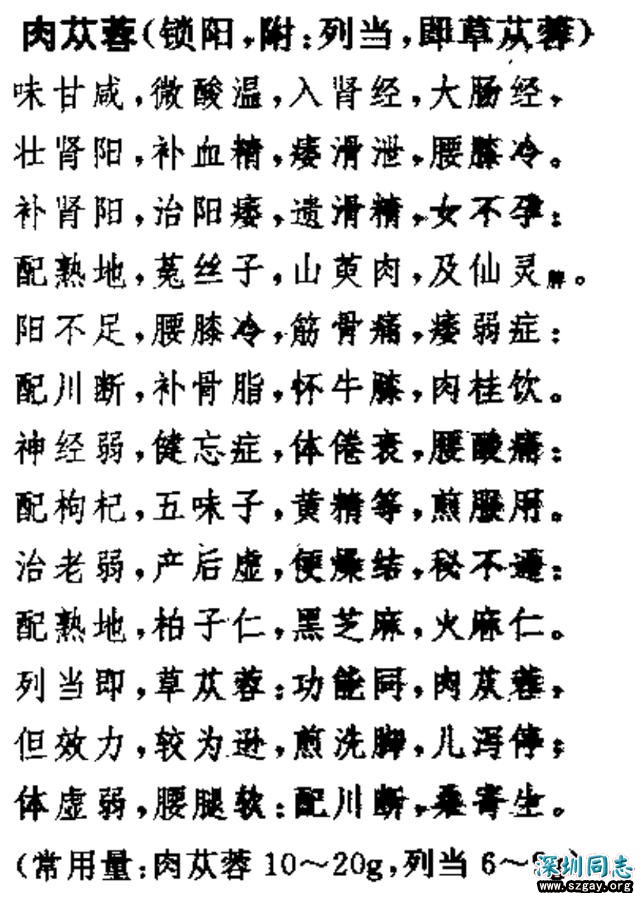 肉苁蓉(锁阳,附:列当,即草苁蓉)
味甘咸,微酸温,入肾经,大肠经,
壮肾阳,补血精,痿滑泄,腰膝冷。
补肾阳,治阳痿,遗滑精,女不孕:
配熟地,菟丝子,山萸肉,及仙灵脾。
阳不足,腰膝冷,筋骨痛,痿弱症:
配川断,补骨脂,怀牛膝,肉桂饮。
神经弱,健忘症,体倦衰,腰酸痛:
配枸杞,五味子,黄精等,煎服用。
治老弱,产后虚,便燥结,秘不通:
配熟地,柏子仁,黑芝麻,火麻仁。
列当即,草苁蓉:功能同,肉苁蓉,
但效力,较为逊,煎洗脚,儿泻停;
体虚弱,腰腿软:配川断,桑寄生。
(常用量:肉苁蓉 10～20g,列当 6～g)
深圳同志
www.szgay.org